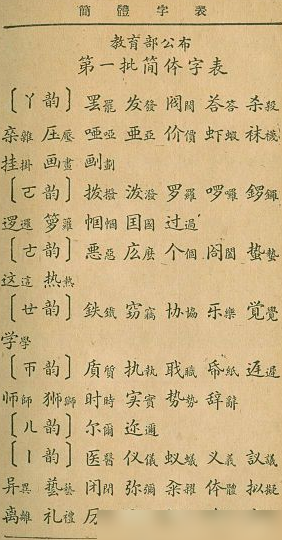 簡體字表
教育部公布
第一批简体字表
〔ㄚ韵〕罢罷 发發 阀閥 荅答 杀殺
杂雜 压壓 哑啞 亚亞 价價 虾蝦 袜襪
挂掛 画畫 划劃
〔ㄛ韵〕拨撥 泼潑 罗羅 啰囉 锣鑼
逻邏 箩籮 帼幗 国國 过過
〔ㄜ韵〕恶惡 庅麼 个個 阁閣 蛰蟄
这這 热熱
〔ㄝ韵〕鉄鐵 窃竊 协協 乐樂 觉覺
学學
〔ㄭ韵〕质質 执執 职職 帋紙 迟遲
师師 狮獅 时時 实實 势勢 辞辭
〔ㄦ韵〕尔爾 迩邇
〔ㄧ韵〕医醫 仪儀 蚁蟻 义義 议議
异異 藝 闭閉 弥彌 籴糴 体體 拟擬
离離 礼禮 厉